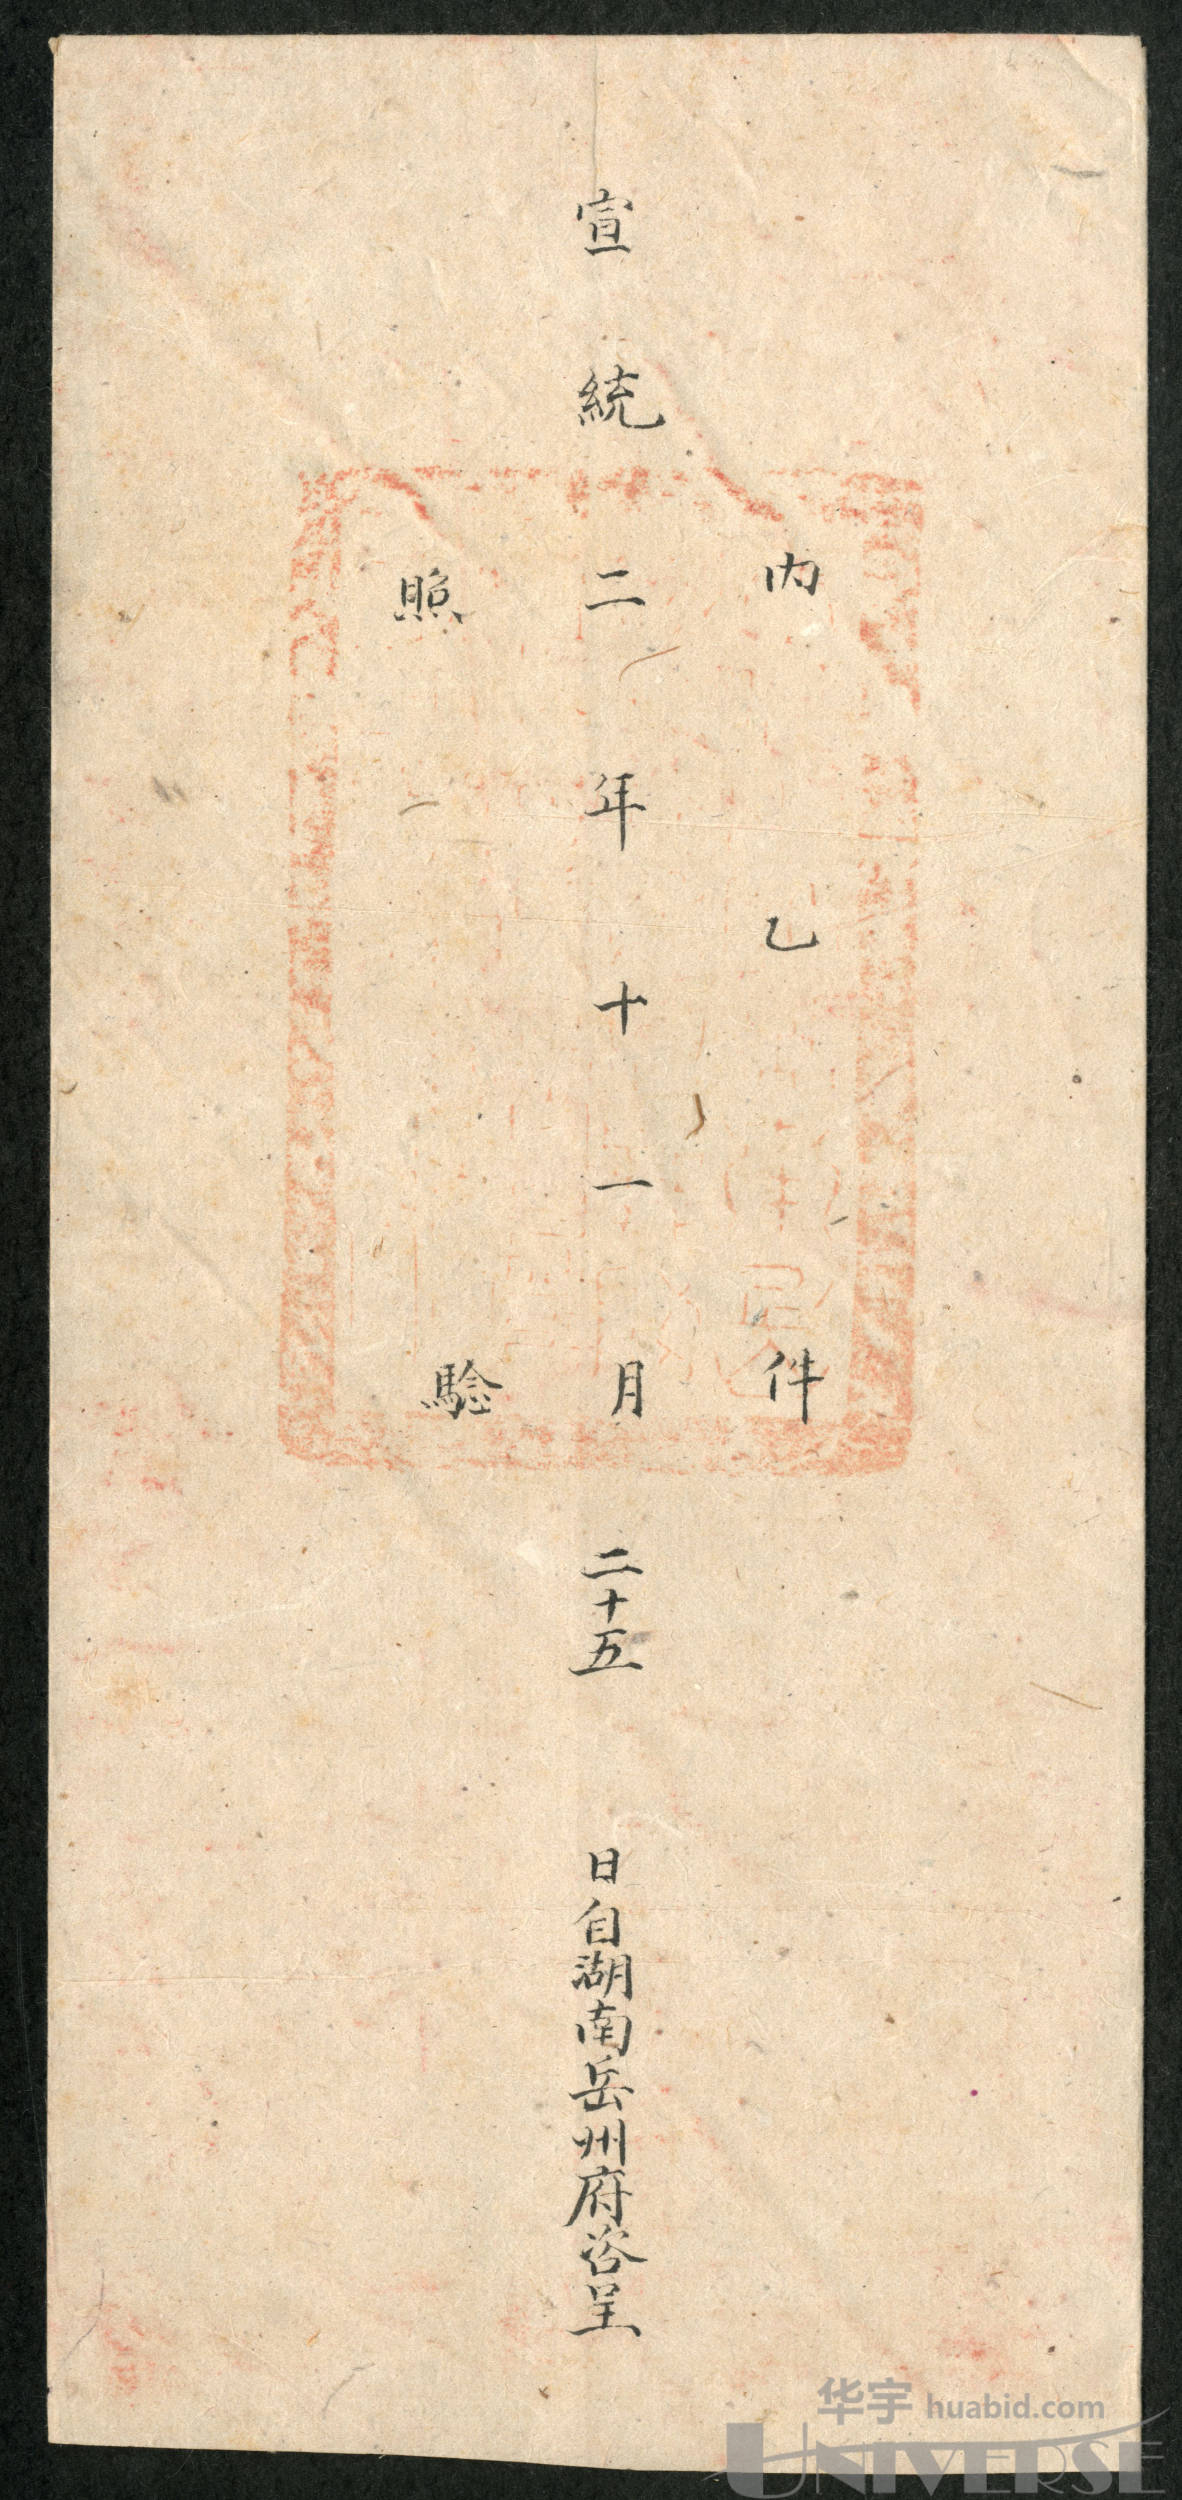 内乙件
宣統二年十一月二十五日自湖南岳州府咨呈
照驗
华宇 huabid.com
UNIVERSE